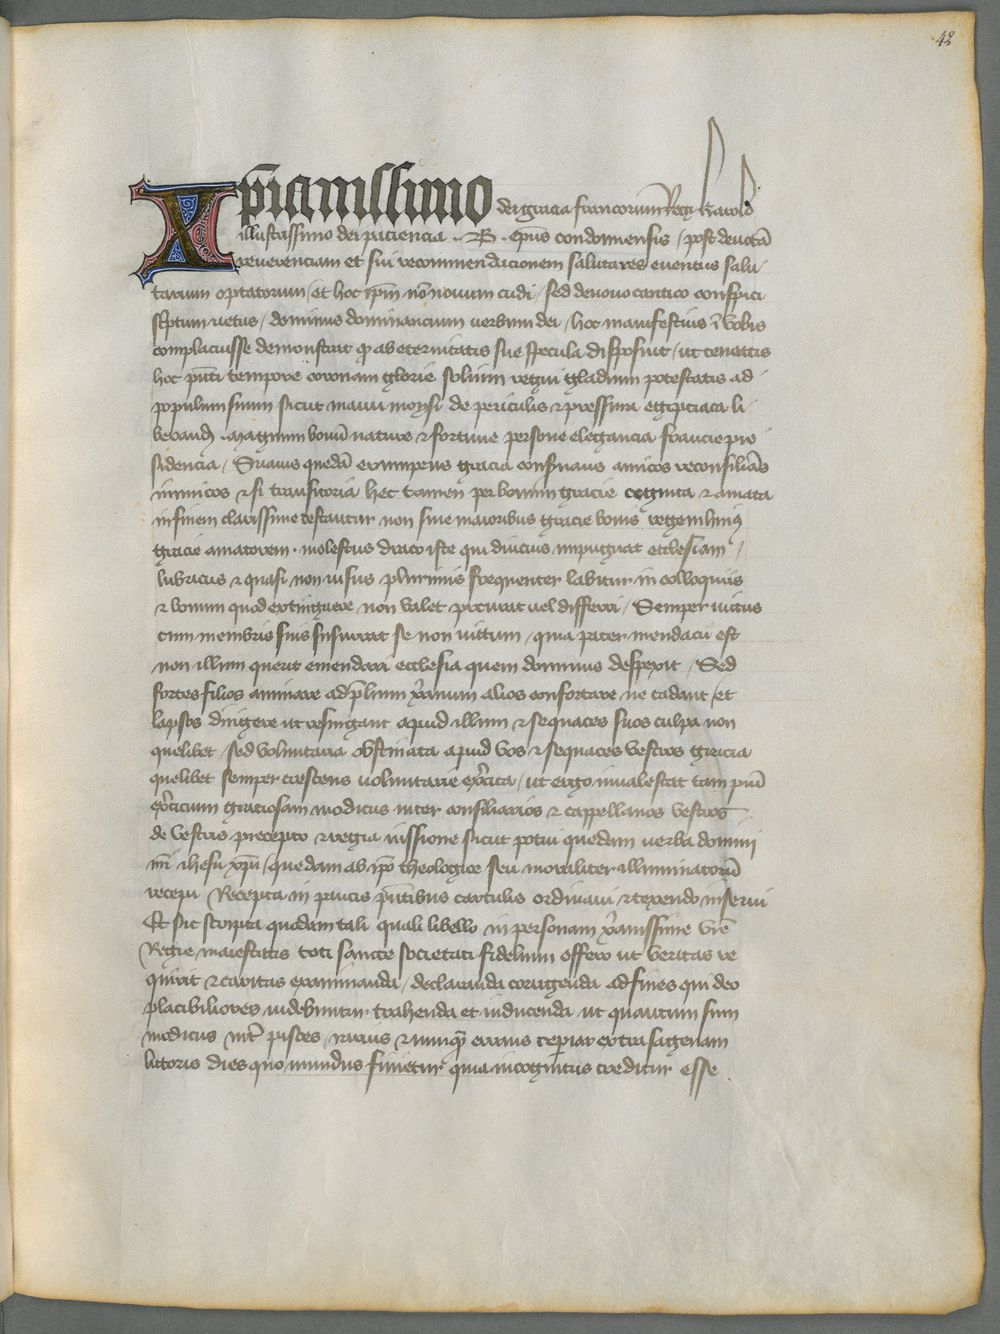 42
Xp̄ianissimo dei gracia francorum Regi karolo
illustrissimo dei paciencia .B. ep̄us condomiensis / post deuotā
reuerenciam et sui recommendacionem salutares euentus salu
tarium optatorum / et hoc ip̄m nō nouum cudi / sed de nouo cantico conspici
sc̄ptum uetus / dominus dominancium uerbum dei / hoc manifestius ī vobis
complacuisse demonstrat qd ab eternitatis sue specula disposuit / ut teneatis
hoc pn̄ti tempore coronam glorie solium regni gladium potestatis ad
populum suum sicut manu moysi de periculis & pressura egipciaca li
berand. Magnum bonū nature & fortune persone elegancia francie pre
sidencia / Suauis quedā exuuperus gracia conseruans amicos reconsiliās
inimicos & si transitoria hec tamen per bonum gracie cognita & amata
in finem clarissime testantur non sine maioribus gracie bonis regem huiꝰ
gracie amatorem. molestus draco iste qui diucius impugnat ecclesiam /
lubricus & quasi non uisus plurimis frequenter labitur in colloquiis
& bonum quod extinguere non valet procurat uel differri / Semper uictus
cum membris suis susurrat se non uictum / quia pater mendacii est
non illum querit emendari ecclesia quem dominus despexit / Sed
fortes filios animare ad p̄lium xp̄ianum alios confortare ne cadant / et
lapsos dirigere ut resurgant apud illum & sequaces suos culpa non
quelibet sed voluntaria obstinata apud vos & sequaces vestros gracia
quelibet semper crescens voluntarie exc̄ita / ut ergo inualescat tam piū
exc̄icium graciosam modicus inter consiliarios & cappellanos vestros
de vestris precepto & regia iussione sicut potui quedam uerba domini
nr̄i ihesu xp̄i / quedam ab ip̄o theologice seu moraliter illuminatorū
recepi Recepta in paucis pn̄tibus cartulis ordinaui & texendo inserui
Et sic scripta quodam tali quali libello in personam xp̄ianissime vr̄e
Regie maiestatis toti sancte societati fidelium offero ut veritas re
quirit & caritas examinanda / declaranda corrigenda ad fines qui deo
placibiliores uidebuntur trahenda et inducenda ut quantum sum
modicus int̄ pisces / nunquā extra sagenam
littoris dies quo mundus finietur quia incognitus creditur esse